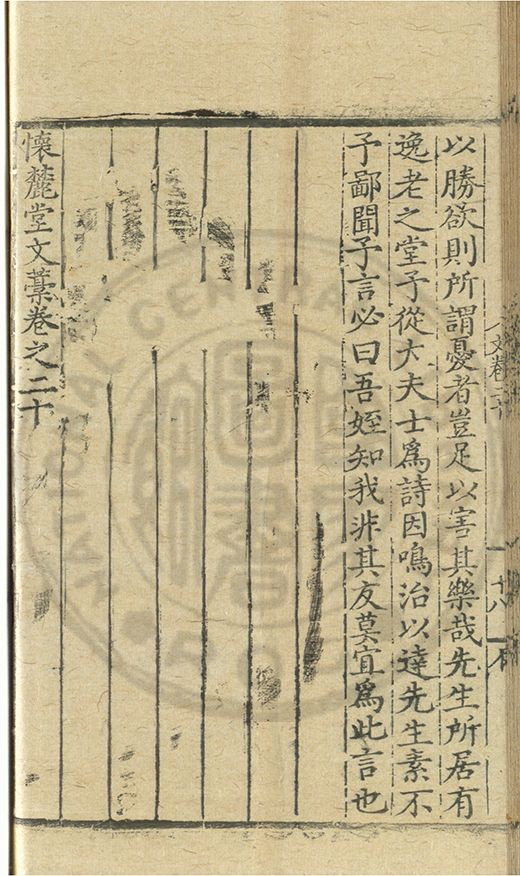 文卷二十
十八
以勝欲則所謂憂者豈足以害其樂哉先生所居有
逸老之堂予從大夫士爲詩因鳴治以達先生素不
予鄙聞予言必曰吾姪知我非其友莫宜爲此言也
懷麓堂文藁卷之二十